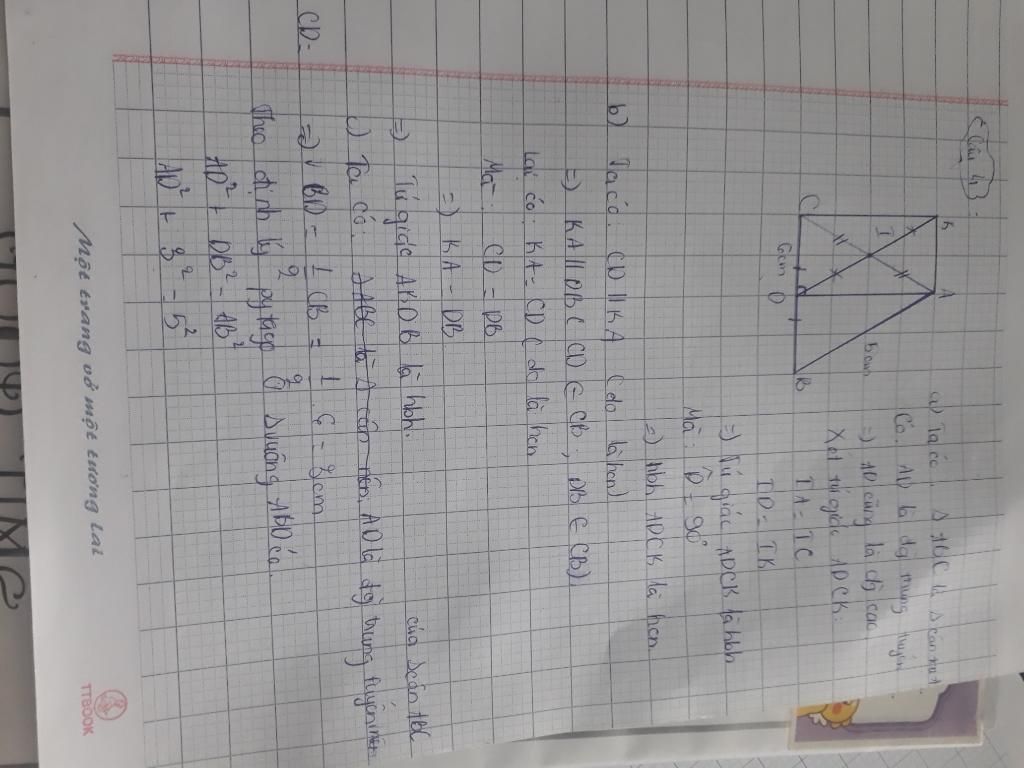 Câu 4:
K A
I 5cm
C 6cm D B
a) Ta có: Δ ABC là Δ cân tại A
Có: AD là đg trung tuyến
=> AD cũng là đg cao
Xét tứ giác ADCK:
IA = IC
ID = IK
=> Tứ giác ADCK là hbh
Mà: D̂ = 90°
=> hbh ADCK là hcn
b) Ta có: CD // KA (do là hcn)
=> KA // DB (CD ∈ CB, DB ∈ CB)
Lại có: KA = CD (do là hcn
Mà: CD = DB
=> KA = DB
=> Tứ giác AKDB là hbh.
của Δ cân ABC
c) Ta có: ΔABC là Δ cân nên AD là đg trung tuyến
CD = => BD = 1/2 CB = 1/2 . 6 = 3cm
Theo định lý pytago Δ vuông ABD có.
AD² + DB² = AB²
AD² + 3² = 5²
Một trang vở một tương lai
TTBOOK